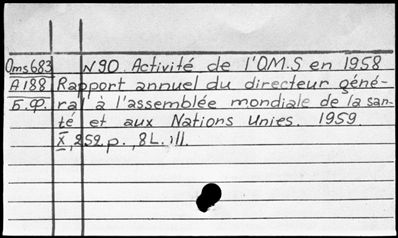 Oms683 N90 Activité de l'OM.S en 1958
A188 Rapport annuel du directeur géné-
Б.Ф. ral à l'assemblée mondiale de la san-
té et aux Nations Unies. 1959.
X, 252.p., 8L. ill.